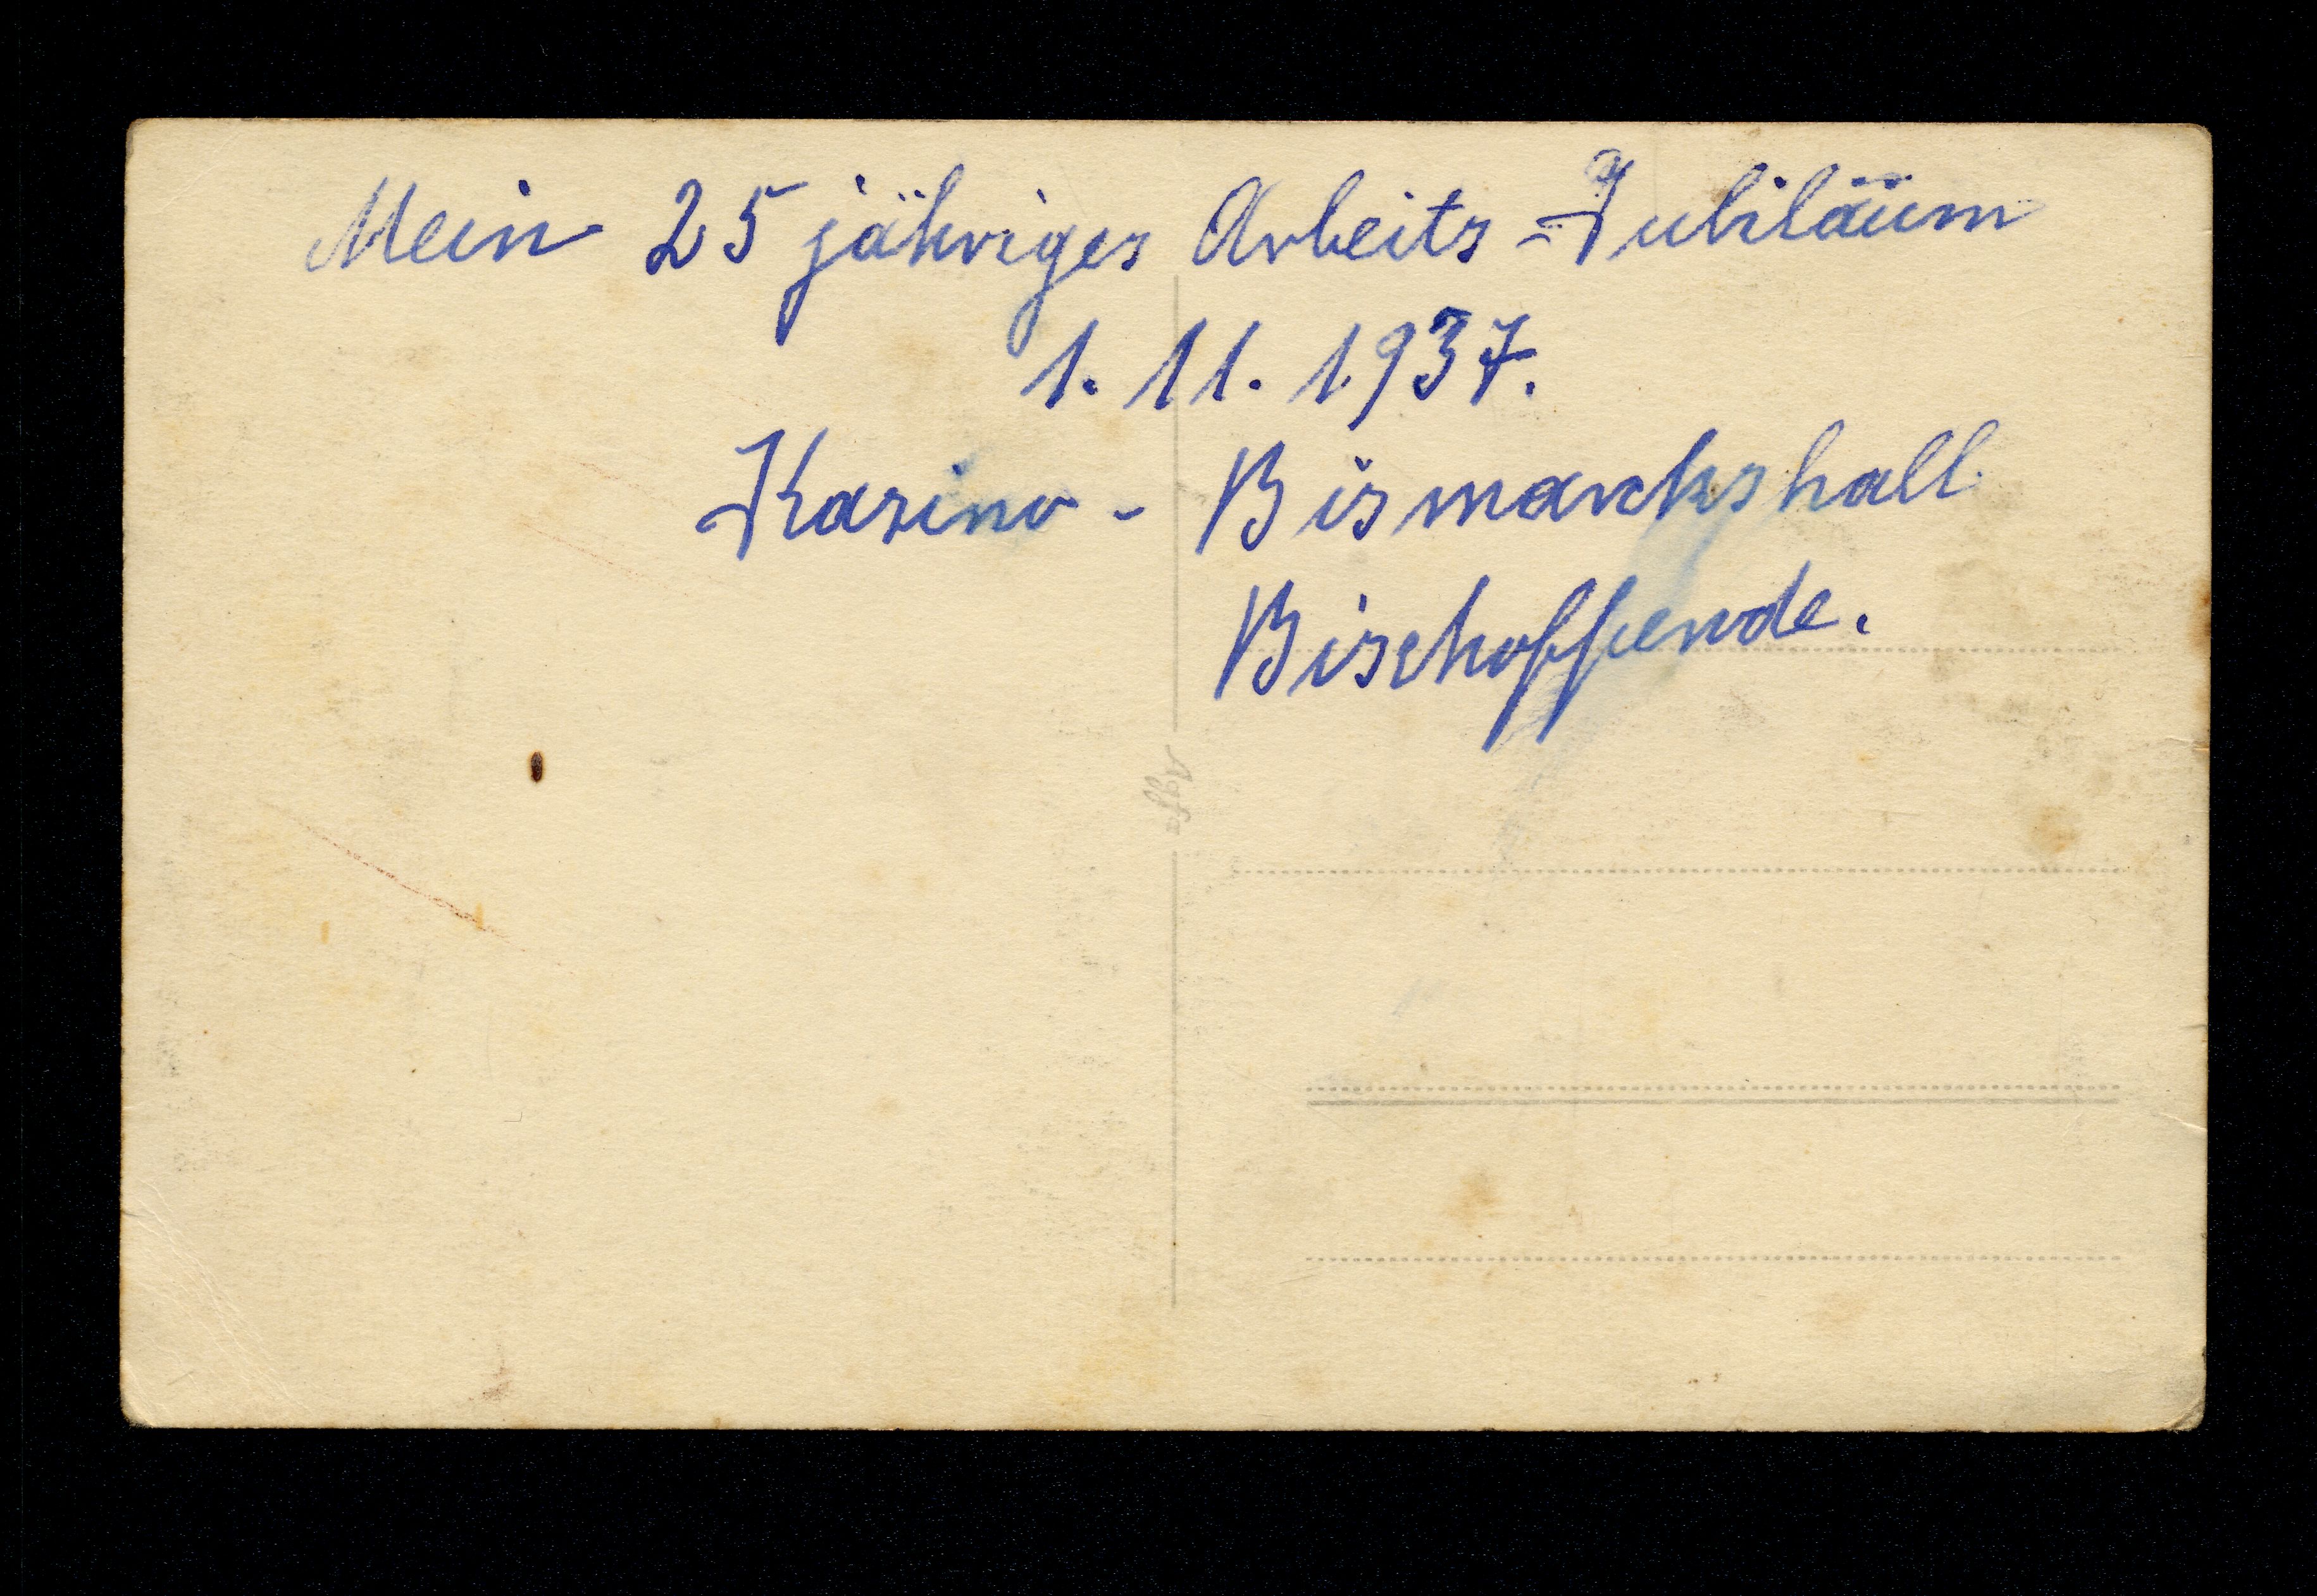 Mein 25 jähriges Arbeits=Jubiläum
1. 11. 1937.
Kasino - Bismarckshall
Bischofferode.
Agfa